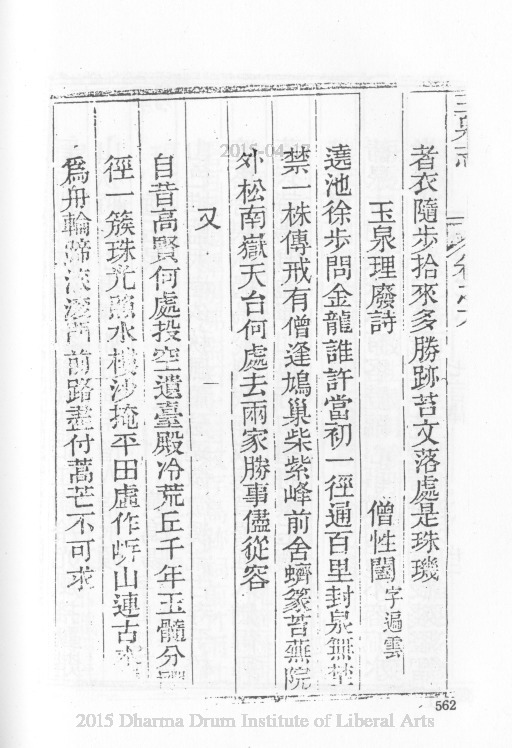 者衣隨步拾來多勝跡苔文落處是珠璣
玉泉理廢詩
僧性闓字遍雲
遶池徐步問金龍誰許當初一徑通百里封泉無埜
禁一株傳戒有僧逢鳩巢柴紫峰前舍蠐篆苔蕪院
外松南嶽天台何處去兩家勝事儘從容
又
自昔高賢何處投空遺臺殿冷荒丘千年玉髓分
徑一簇珠光照水樓沙掩平田虛作 山連古
爲舟輪蹄滾滾 前路盡付蒿芒不可求
2015-04-17
562
2015 Dharma Drum Institute of Liberal Arts